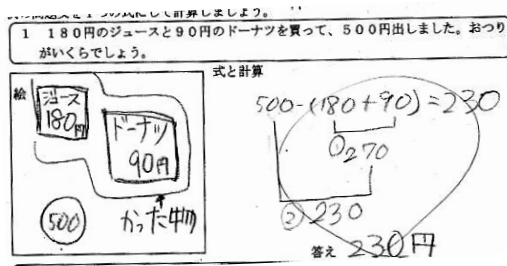 の問題文を1つの式にして計算しましょう。
1 180円のジュースと90円のドーナツを買って、500円出しました。おつり
がいくらでしょう。
絵
式と計算
ジュース
180円
ドーナツ
90円
500
かった物
500-(180+90)=230
①270
②230
答え 230円